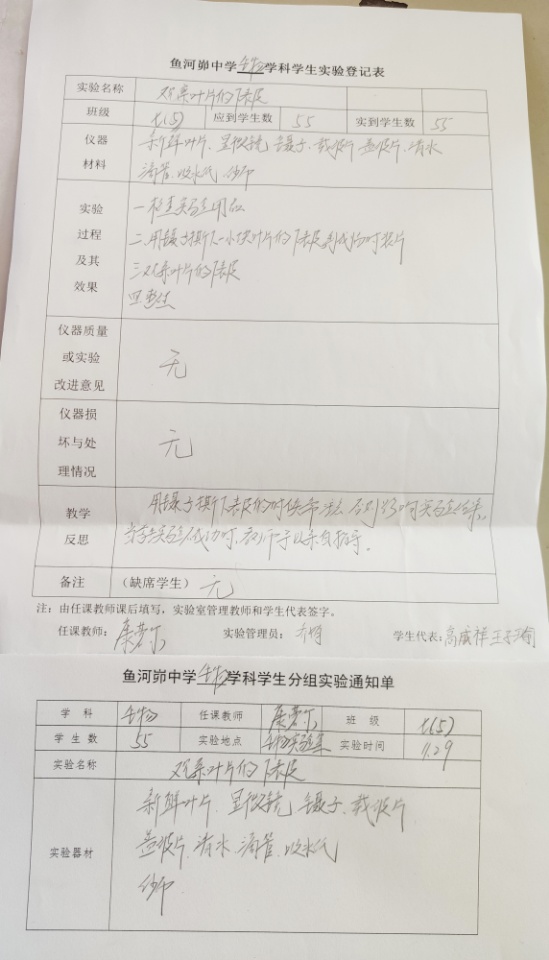 鱼河峁中学生物学科学生实验登记表
实验名称 观察叶片的下表皮
班级 七(5) 应到学生数 55 实到学生数 55
仪器 新鲜叶片、显微镜、镊子、载玻片、盖玻片、清水
材料 滴管、吸水纸、纱布
实验 一检查实验用
过程 二.用镊子撕下一小块叶片的下表皮制成临时装片
及其 三观察叶片的下表皮
效果 四.整
仪器质量
或实验 无
改进意见
仪器损
坏与处 无
理情况
教学 用镊子撕下表皮的时候 实验结果。
反思 当学实验不成功时,教师予以亲自指导。
备注 (缺席学生) 无
注:由任课教师课后填写,实验室管理教师和学生代表签字。
任课教师: 实验管理员: 学生代表:高
鱼河峁中学生物学科学生分组实验通知单
学 科 生物 任课教师 班 级 七(5)
学 生 数 55 实验地点 生物实验室 实验时间 11.29
实验名称 观察叶片的下表皮
新鲜叶片、显微镜、镊子、载玻片
盖玻片、清水、滴管、吸水纸
实验器材
纱布